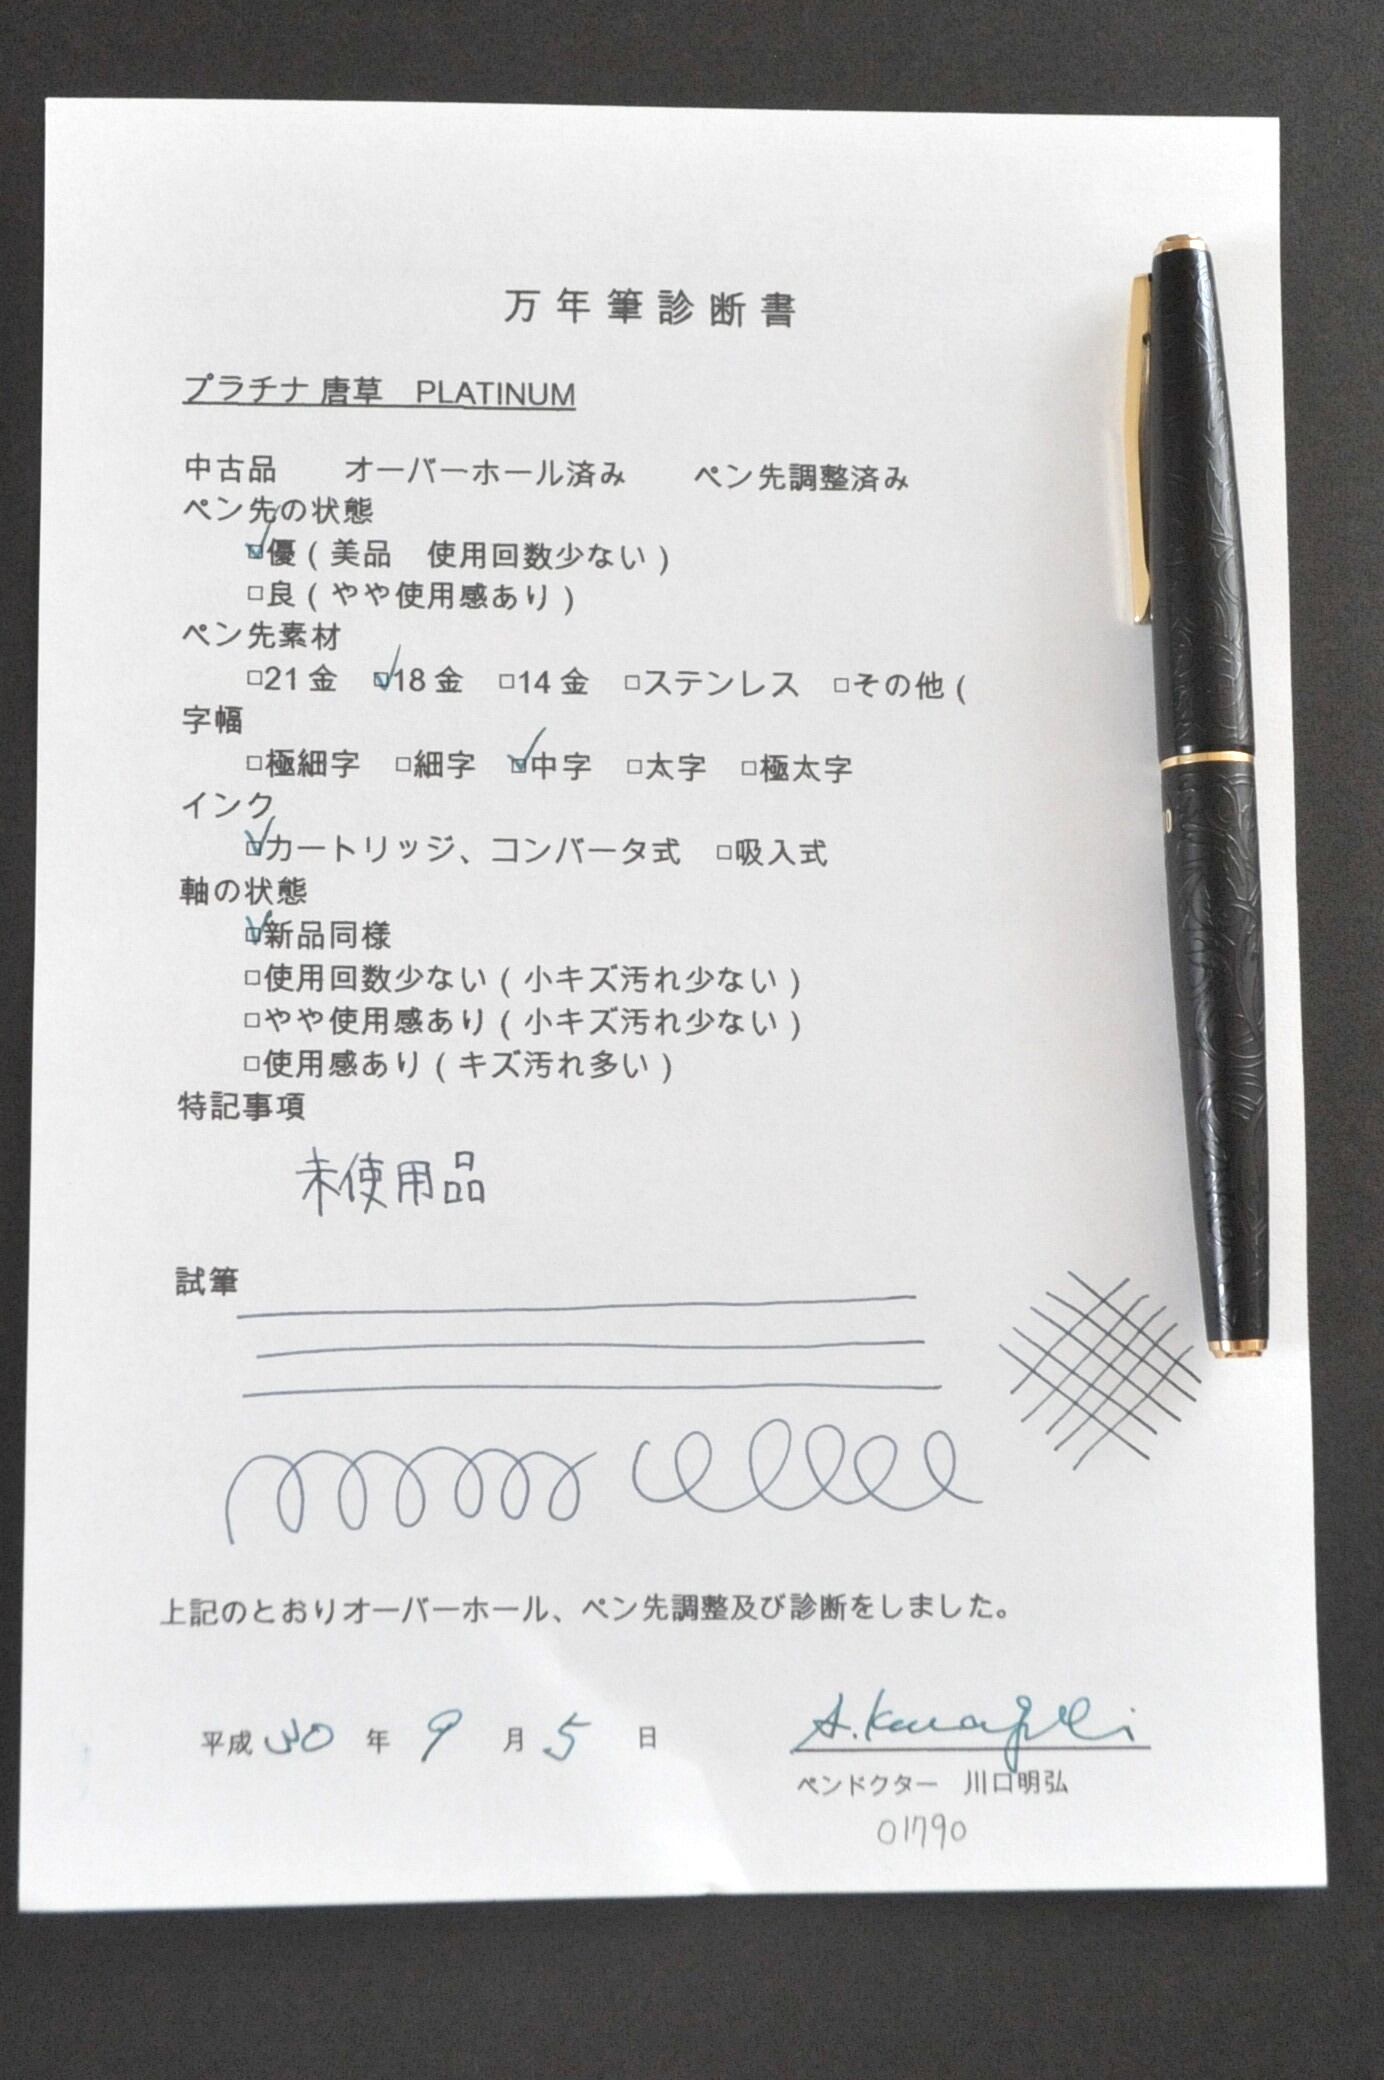 万年筆診断書
プラチナ 唐草　PLATINUM
中古品　　オーバーホール済み　　ペン先調整済み
ペン先の状態
☑優（美品　使用回数少ない）
□良（やや使用感あり）
ペン先素材
□21金　☑18金　□14金　□ステンレス　□その他（
字幅
□極細字　□細字　☑中字　□太字　□極太字
インク
☑カートリッジ、コンバータ式　□吸入式
軸の状態
☑新品同様
□使用回数少ない（小キズ汚れ少ない）
□やや使用感あり（小キズ汚れ少ない）
□使用感あり（キズ汚れ多い）
特記事項
未使用品
試筆
上記のとおりオーバーホール、ペン先調整及び診断をしました。
平成 30 年 9 月 5 日
A. Kawaguchi
ペンドクター　川口明弘
01790